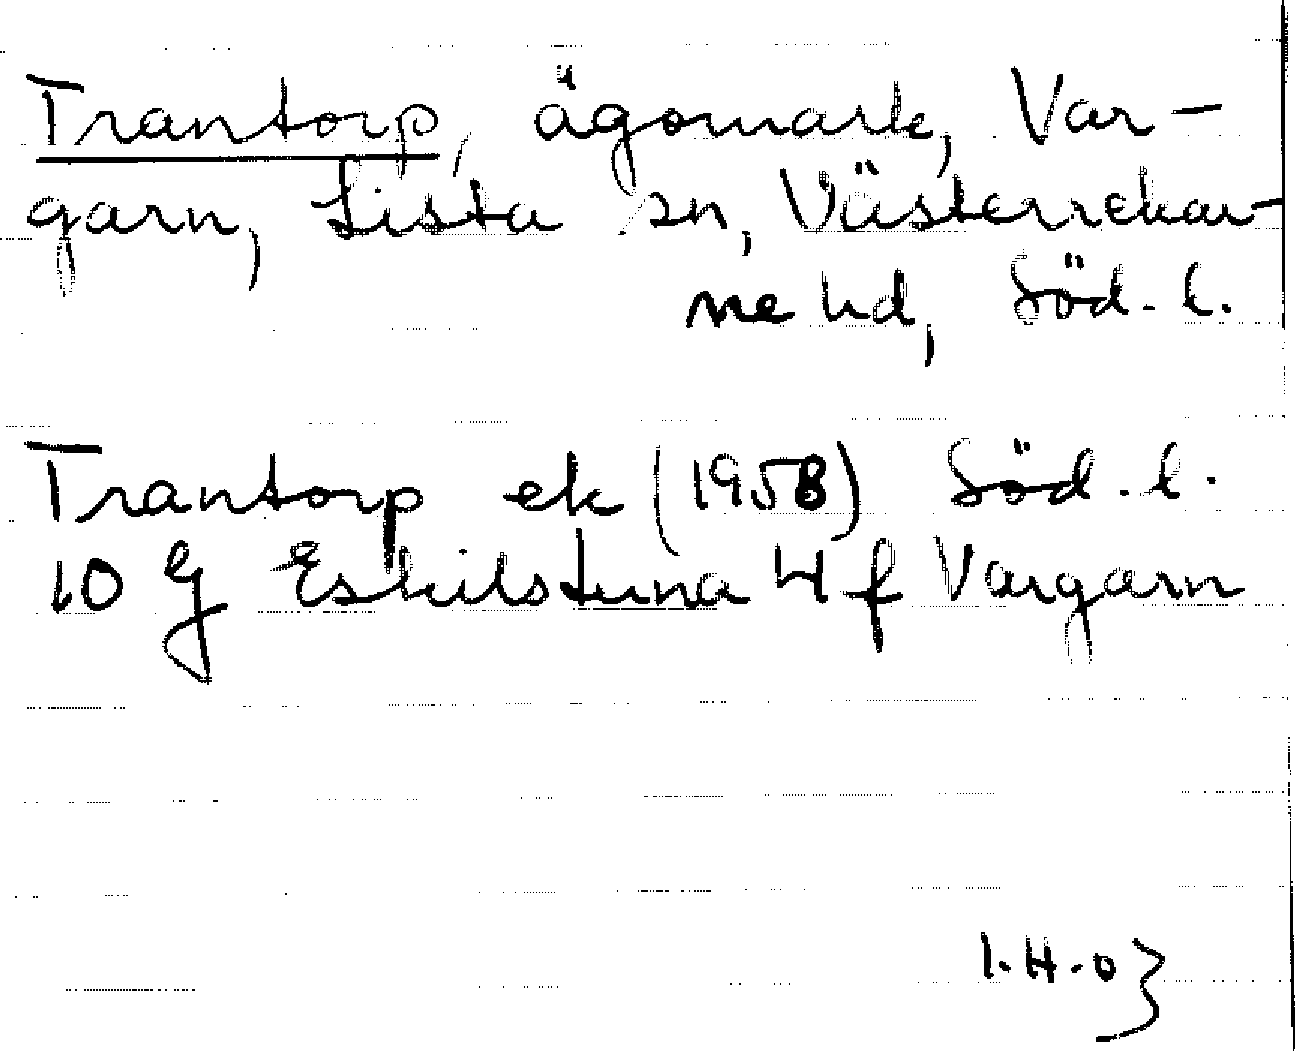 Trantorp, ägomark, Var-
garn, Lista sn, Västerrekar-
ne hd, Söd. l.
Trantorp ek (1958) Söd. l.
10 G Eskilstuna 4 f Vargarn
I.H.